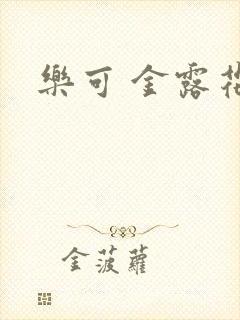 樂可 金露
金菠蘿